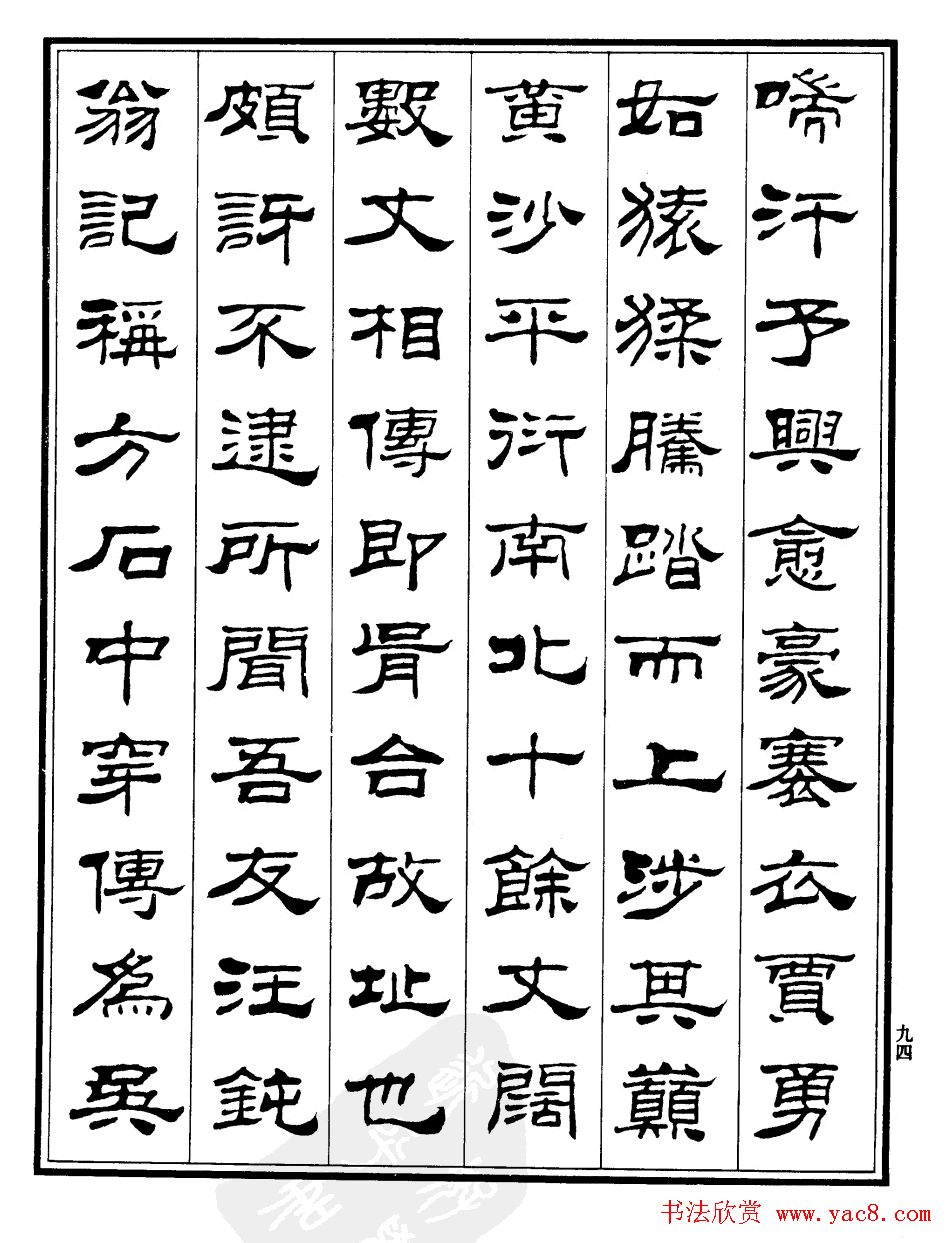 唏汗予興愈豪褰衣賈勇
如猿猱騰踏而上涉其巔
黄沙平衍南北十餘丈闊
數丈相傳即胥台故址也
頗訝不逮所聞吾友汪鈍
翁記稱方石中穿傳爲吳
九四
书法欣赏 www.yac8.com